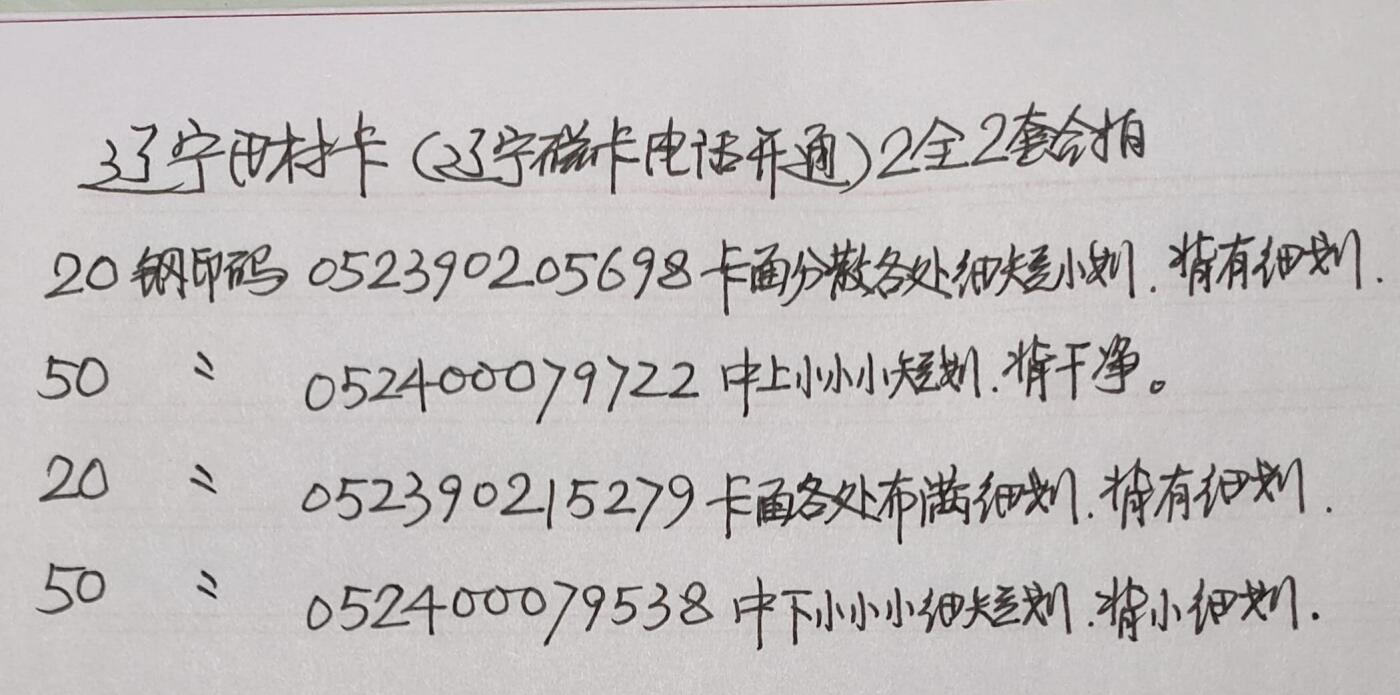 辽宁田村卡(辽宁磁卡电话开通)2全2套合拍
20 钢印码 052390205698 卡面分散各处细短小划.背有细划.
50 〃 052400079722 中上小小小短划.背干净。
20 〃 052390215279 卡面各处布满细划.背有细划.
50 〃 052400079538 中下小小小细短划.背小细划.